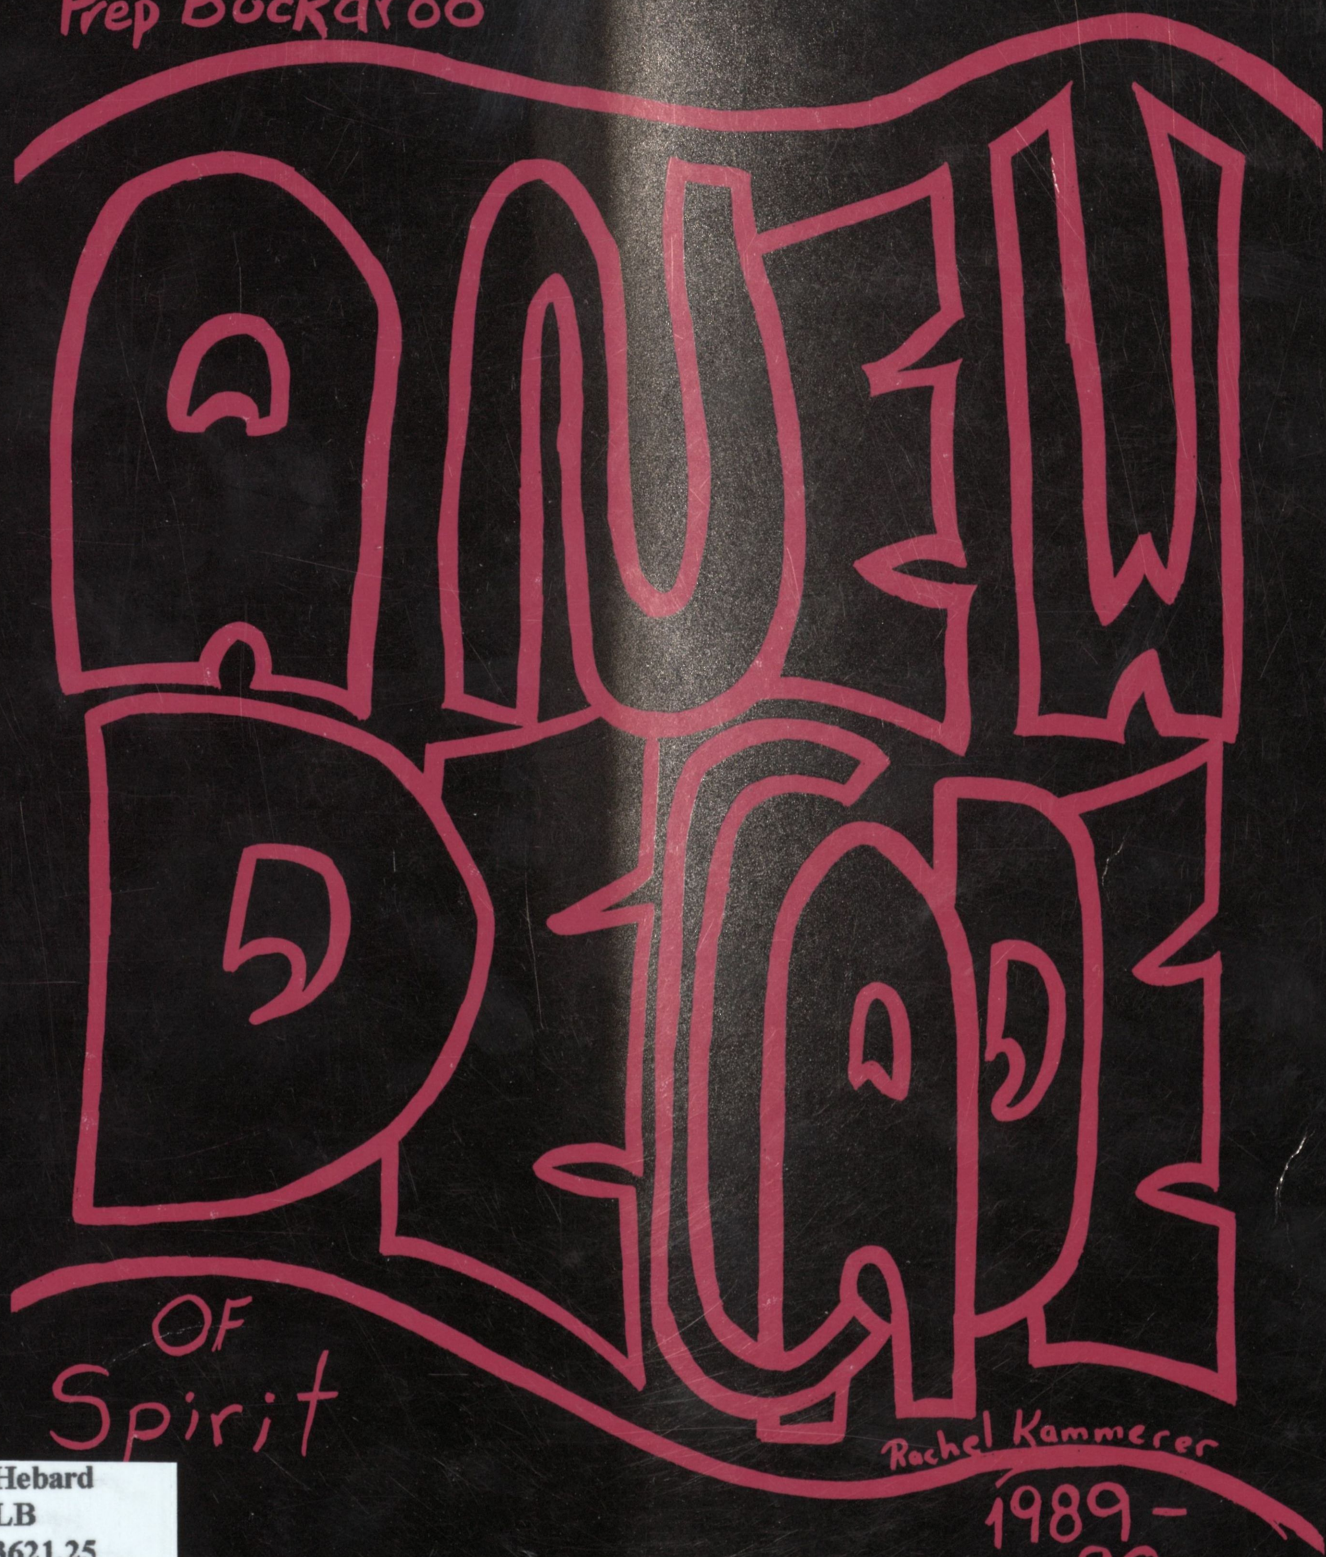 Prep Buckaroo
A NEW
DECADE
OF
Spirit
Rachel Kammerer
1989 -
90
Hebard
LB
3621.25